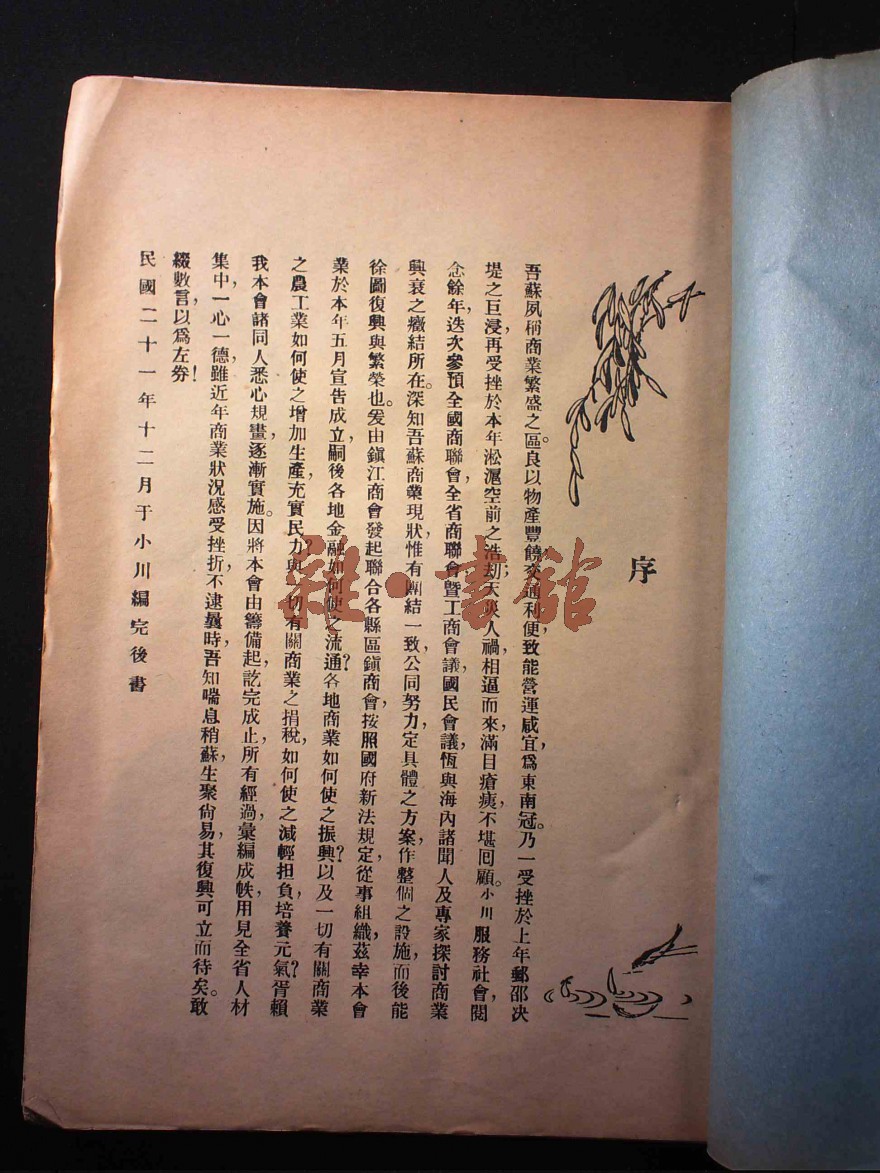 序
吾蘇夙稱商業繁盛之區。良以物產豐饒,交通利便,致能營運咸宜,爲東南冠。乃一受挫於上年郵邵决
堤之巨浸,再受挫於本年淞滬空前之浩劫;天災人禍,相逼而來,滿目瘡痍,不堪囘顧。小川服務社會,閱
念餘年,迭次參預全國商聯會,全省商聯會暨工商會議,國民會議,恆與海內諸聞人及專家探討商業
興衰之癥結所在。深知吾蘇商業現狀,惟有團結一致,公同努力,定具體之方案,作整個之設施,而後能
徐圖復興與繁榮也。爰由鎭江商會發起聯合各縣區鎭商會,按照國府新法規定,從事組織,茲幸本會
業於本年五月宣告成立,嗣後各地金融如何使之流通?各地商業如何使之振興?以及一切有關商業
之農工業如何使之增加生產,充實民力?與一切有關商業之捐稅,如何使之減輕担負,培養元氣?胥賴
我本會諸同人悉心規畫,逐漸實施。因將本會由籌備起,訖完成止,所有經過,彙編成帙,用見全省人材
集中,一心一德,雖近年商業狀況感受挫折,不逮曩時,吾知喘息稍蘇,生聚尙易,其復興可立而待矣。敢
綴數言,以爲左券!
民國二十一年十二月于小川編完後書
雜·書館